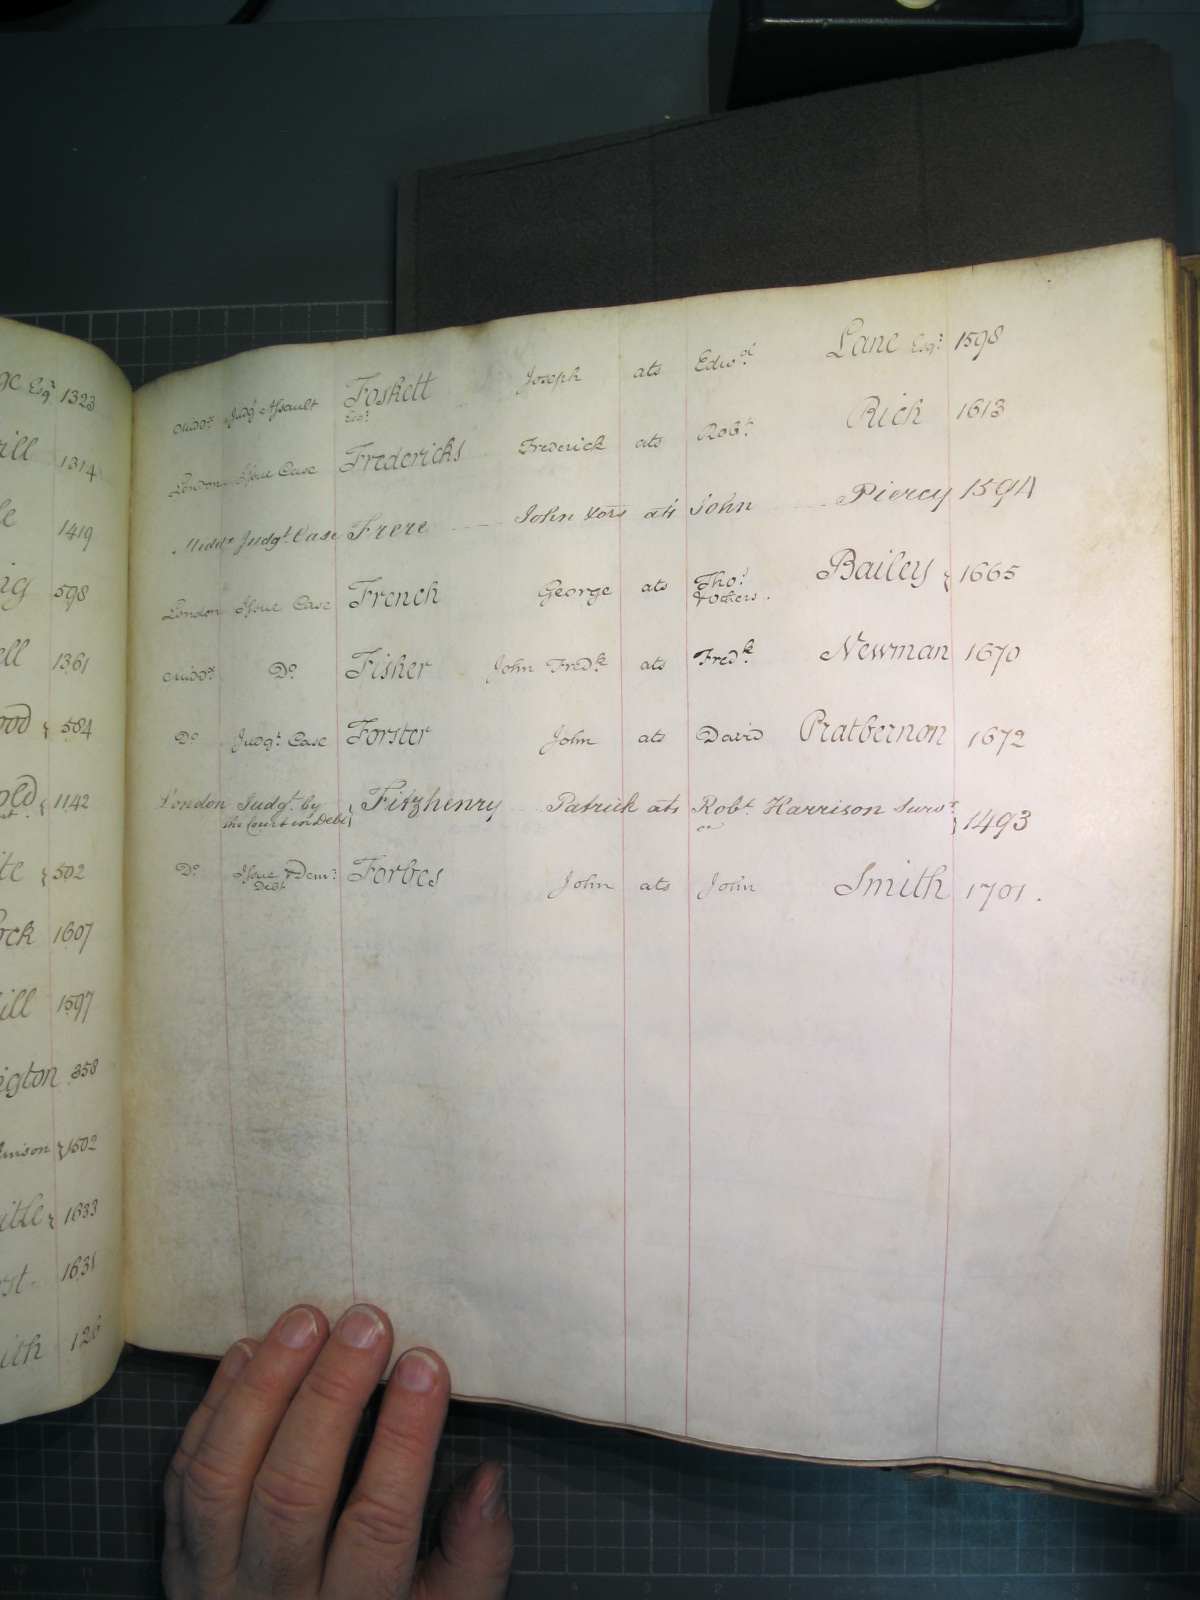 ge Esqr 1323
ill 1314
le 1419
ig 598
ell 1361
ood 584
old 1142
ite 502
ock 1607
ill 1597
igton 358
1502
itle 1633
rst 1631
ith 126
Middx Judgt Assault Foskett Joseph ats Edwd Lane Esqr 1598
Esqr
London Issue Case Fredericks Frederick ats Robt Rich 1613
Middx Judgt Case Frere John & ors ats John Piercy 1594
London Issue Case French George ats Thos Bailey 1665
& others
Middx Do Fisher John Fredk ats Fredk Newman 1670
Do Judgt Case Forster John ats David Pratbernon 1672
London Judgt by Fitzhenry Patrick ats Robt Harrison Survr 1493
the Court in Debt
Do Issue & Demr Forbes John ats John Smith 1701
Debt